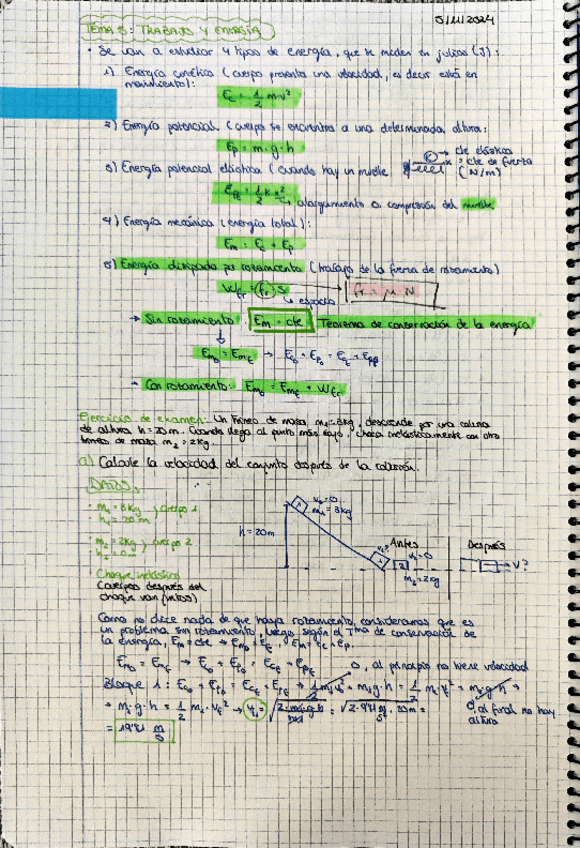 5/11/2024
TEMA 5: TRABAJO Y ENERGÍA
• Se van a estudiar 4 tipos de energía, que se miden en julios (J):
1) Energía cinética (cuerpo presenta una velocidad, es decir está en
movimiento):
Ec = 1/2 m·v²
2) Energía potencial (cuerpo se encuentra a una determinada altura:
Ep = m·g·h
3) Energía potencial elástica (cuando hay un muelle
cte elástica
= cte de fuerza
(N/m)
1/2 k x²
alargamiento o compresión del muelle
4) Energía mecánica (energía total):
Em = Ec + Ep
5) Energía disipada por rozamiento (trabajo de la fuerza de rozamiento)
Wfr = (fr) S
fr = μ·N
espacio
→ Sin rozamiento: Em = cte Teorema de conservación de la energía
Em₀ = Emf → Ec₀ + Ep₀ = Ecf + Epf
→ Con rozamiento: Em₀ = Emf + Wfr
Ejercicio de examen: Un trineo de masa m₁=8kg, desciende por una colina
de altura h=20m. Cuando llega al punto más bajo, choca inelásticamente con otro
trineo de masa m₂=2kg.
a) Calcule la velocidad del conjunto después de la colisión.
DATOS:
• m₁=8kg } cuerpo 1
• h₁=20m
• m₂=2kg } cuerpo 2
• h₂=0m
• Choque inelástico
(cuerpos después del
choque van juntos)
v₀=0
m₁=8kg
h=20m
v₁?
Antes
v₂=0
m₂=2kg
Después
v?
Como no dice nada de que haya rozamiento, consideramos que es
un problema sin rozamiento, luego según el Tma de conservación de
la energía, Em=cte → Em₀=Emf, Em=Ec+Ep.
Em₀=Emf → Ec₀ + Ep₀ = Ecf + Epf
0, al principio no tiene velocidad
Bloque 1: Ec₀ + Ep₀ = Ecf + Epf → 1/2 m₁v₀² + m₁g·h = 1/2 m₁vf² + m₁·g·h →
0, al final no hay
altura
→ m₁·g·h = 1/2 m₁·vf² → vf₁ = √(2·m₁·g·h/m₁) = √(2·9'81 m/s²·20m) =
= 19'81 m/s